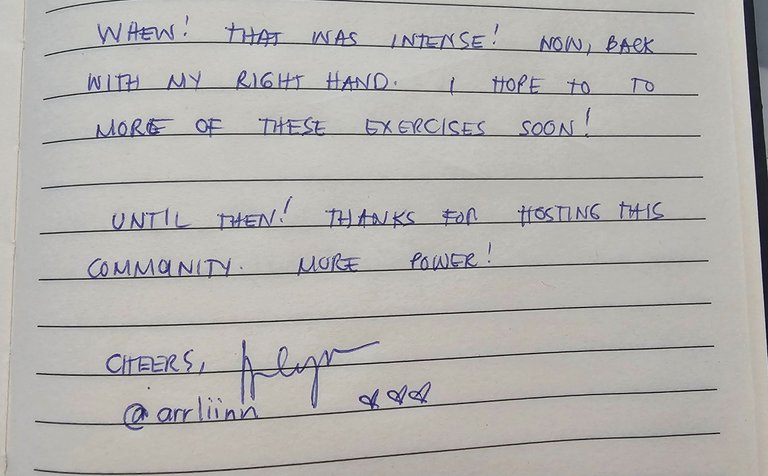 WHEW! THAT WAS INTENSE! NOW, BACK
WITH MY RIGHT HAND. I HOPE TO TO
MORE OF THESE EXERCISES SOON!
UNTIL THEN! THANKS FOR HOSTING THIS
COMMUNITY. MORE POWER!
CHEERS,
@arrliinn